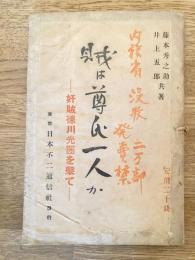 藤本秀之助
井上五一郎 共著
内務省 没収 二万部
発売禁
定価二十銭
賊は尊氏一人か
奸賊徳川光圀を撃て
東京 日本不二通信社 発行